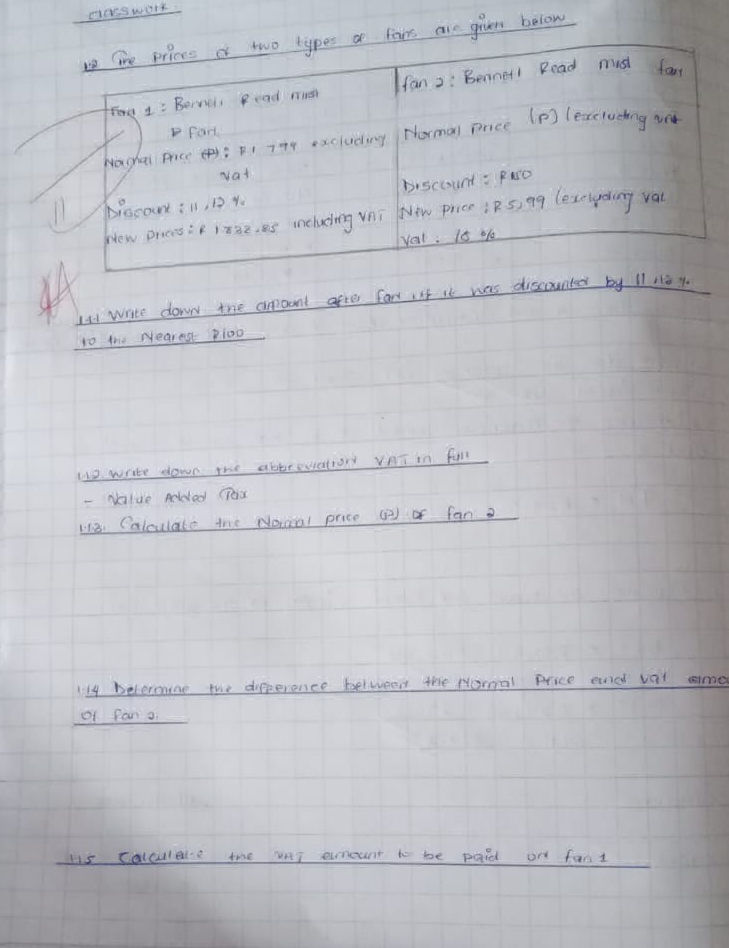 classwork
The prices of two types of fans are given below
Fan 1 : Bennett Read mist
fan
Normal Price (P) : R1 799 excluding
vat
Discount : 11,12 %
New prices : R 1822.85 including VAT
fan 2 : Bennett Read mist fan
Normal Price (P) (excluding vat
Discount :
New price : R 5,99 (excluding val
Val :
1.1.1 Write down the amount after fan it was discounted by 11,12 %
to the Nearest R100
1.1.2. write down the abbreviation VAT in full
- Value Added Tax
1.1.3. Calculate the Normal price (P) of fan 2
1.1.4 Determine the difference between the Normal Price and vat amo
of fan 2.
1.1.5 Calculate the VAT amount to be paid on fan 1